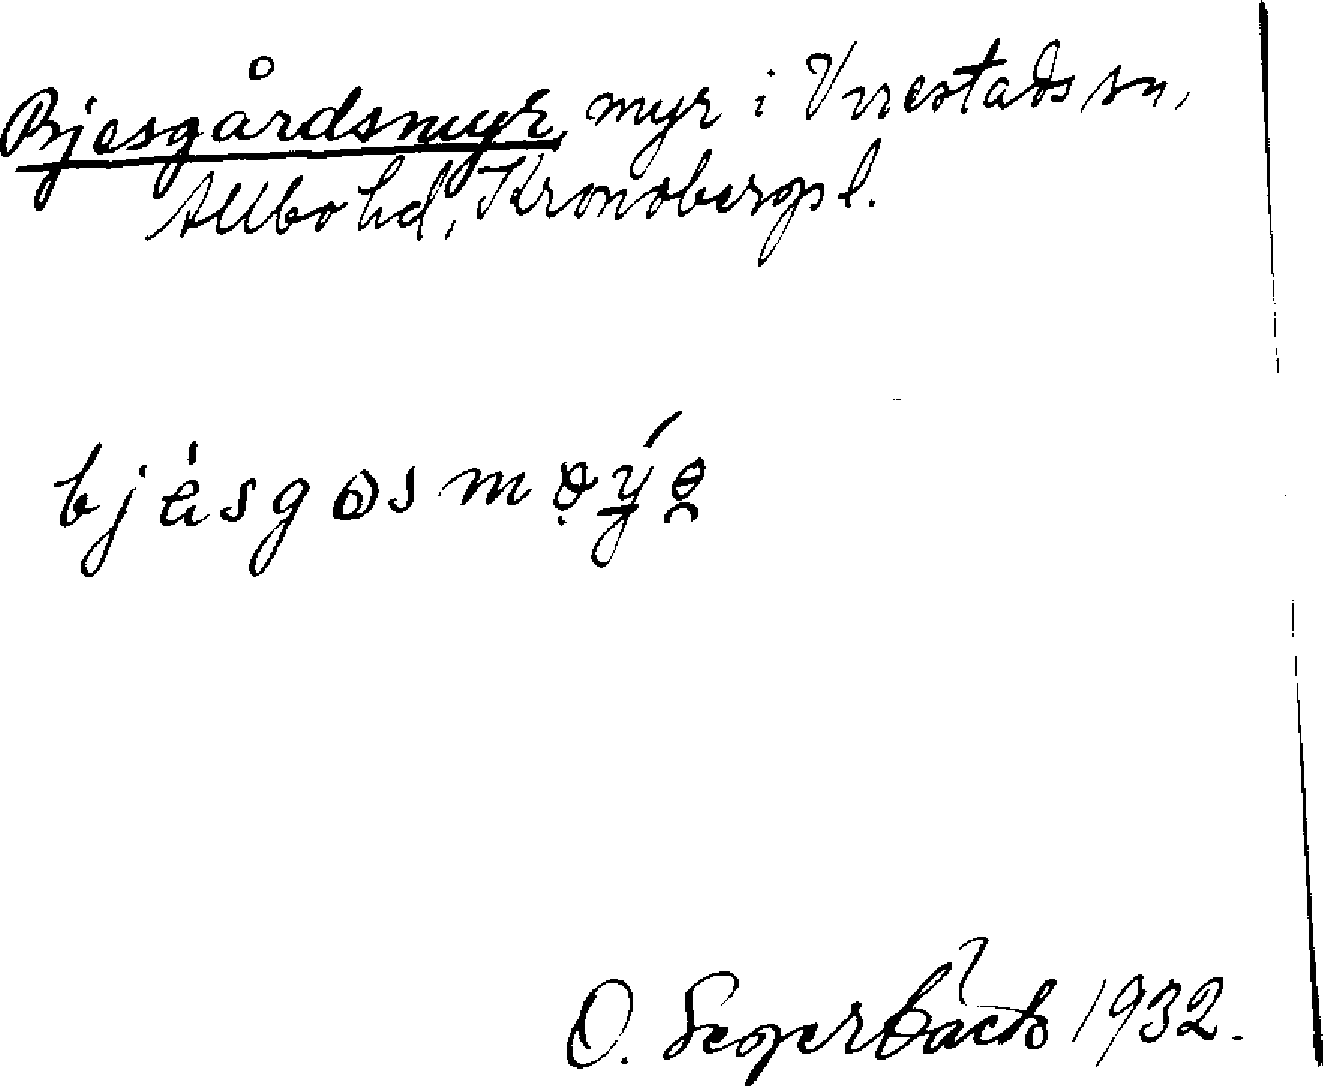 Bjesgårdsmyr, myr i Virestads sn,
Allbo hd, Kronobergs l.
O. Segerbäck 1932.